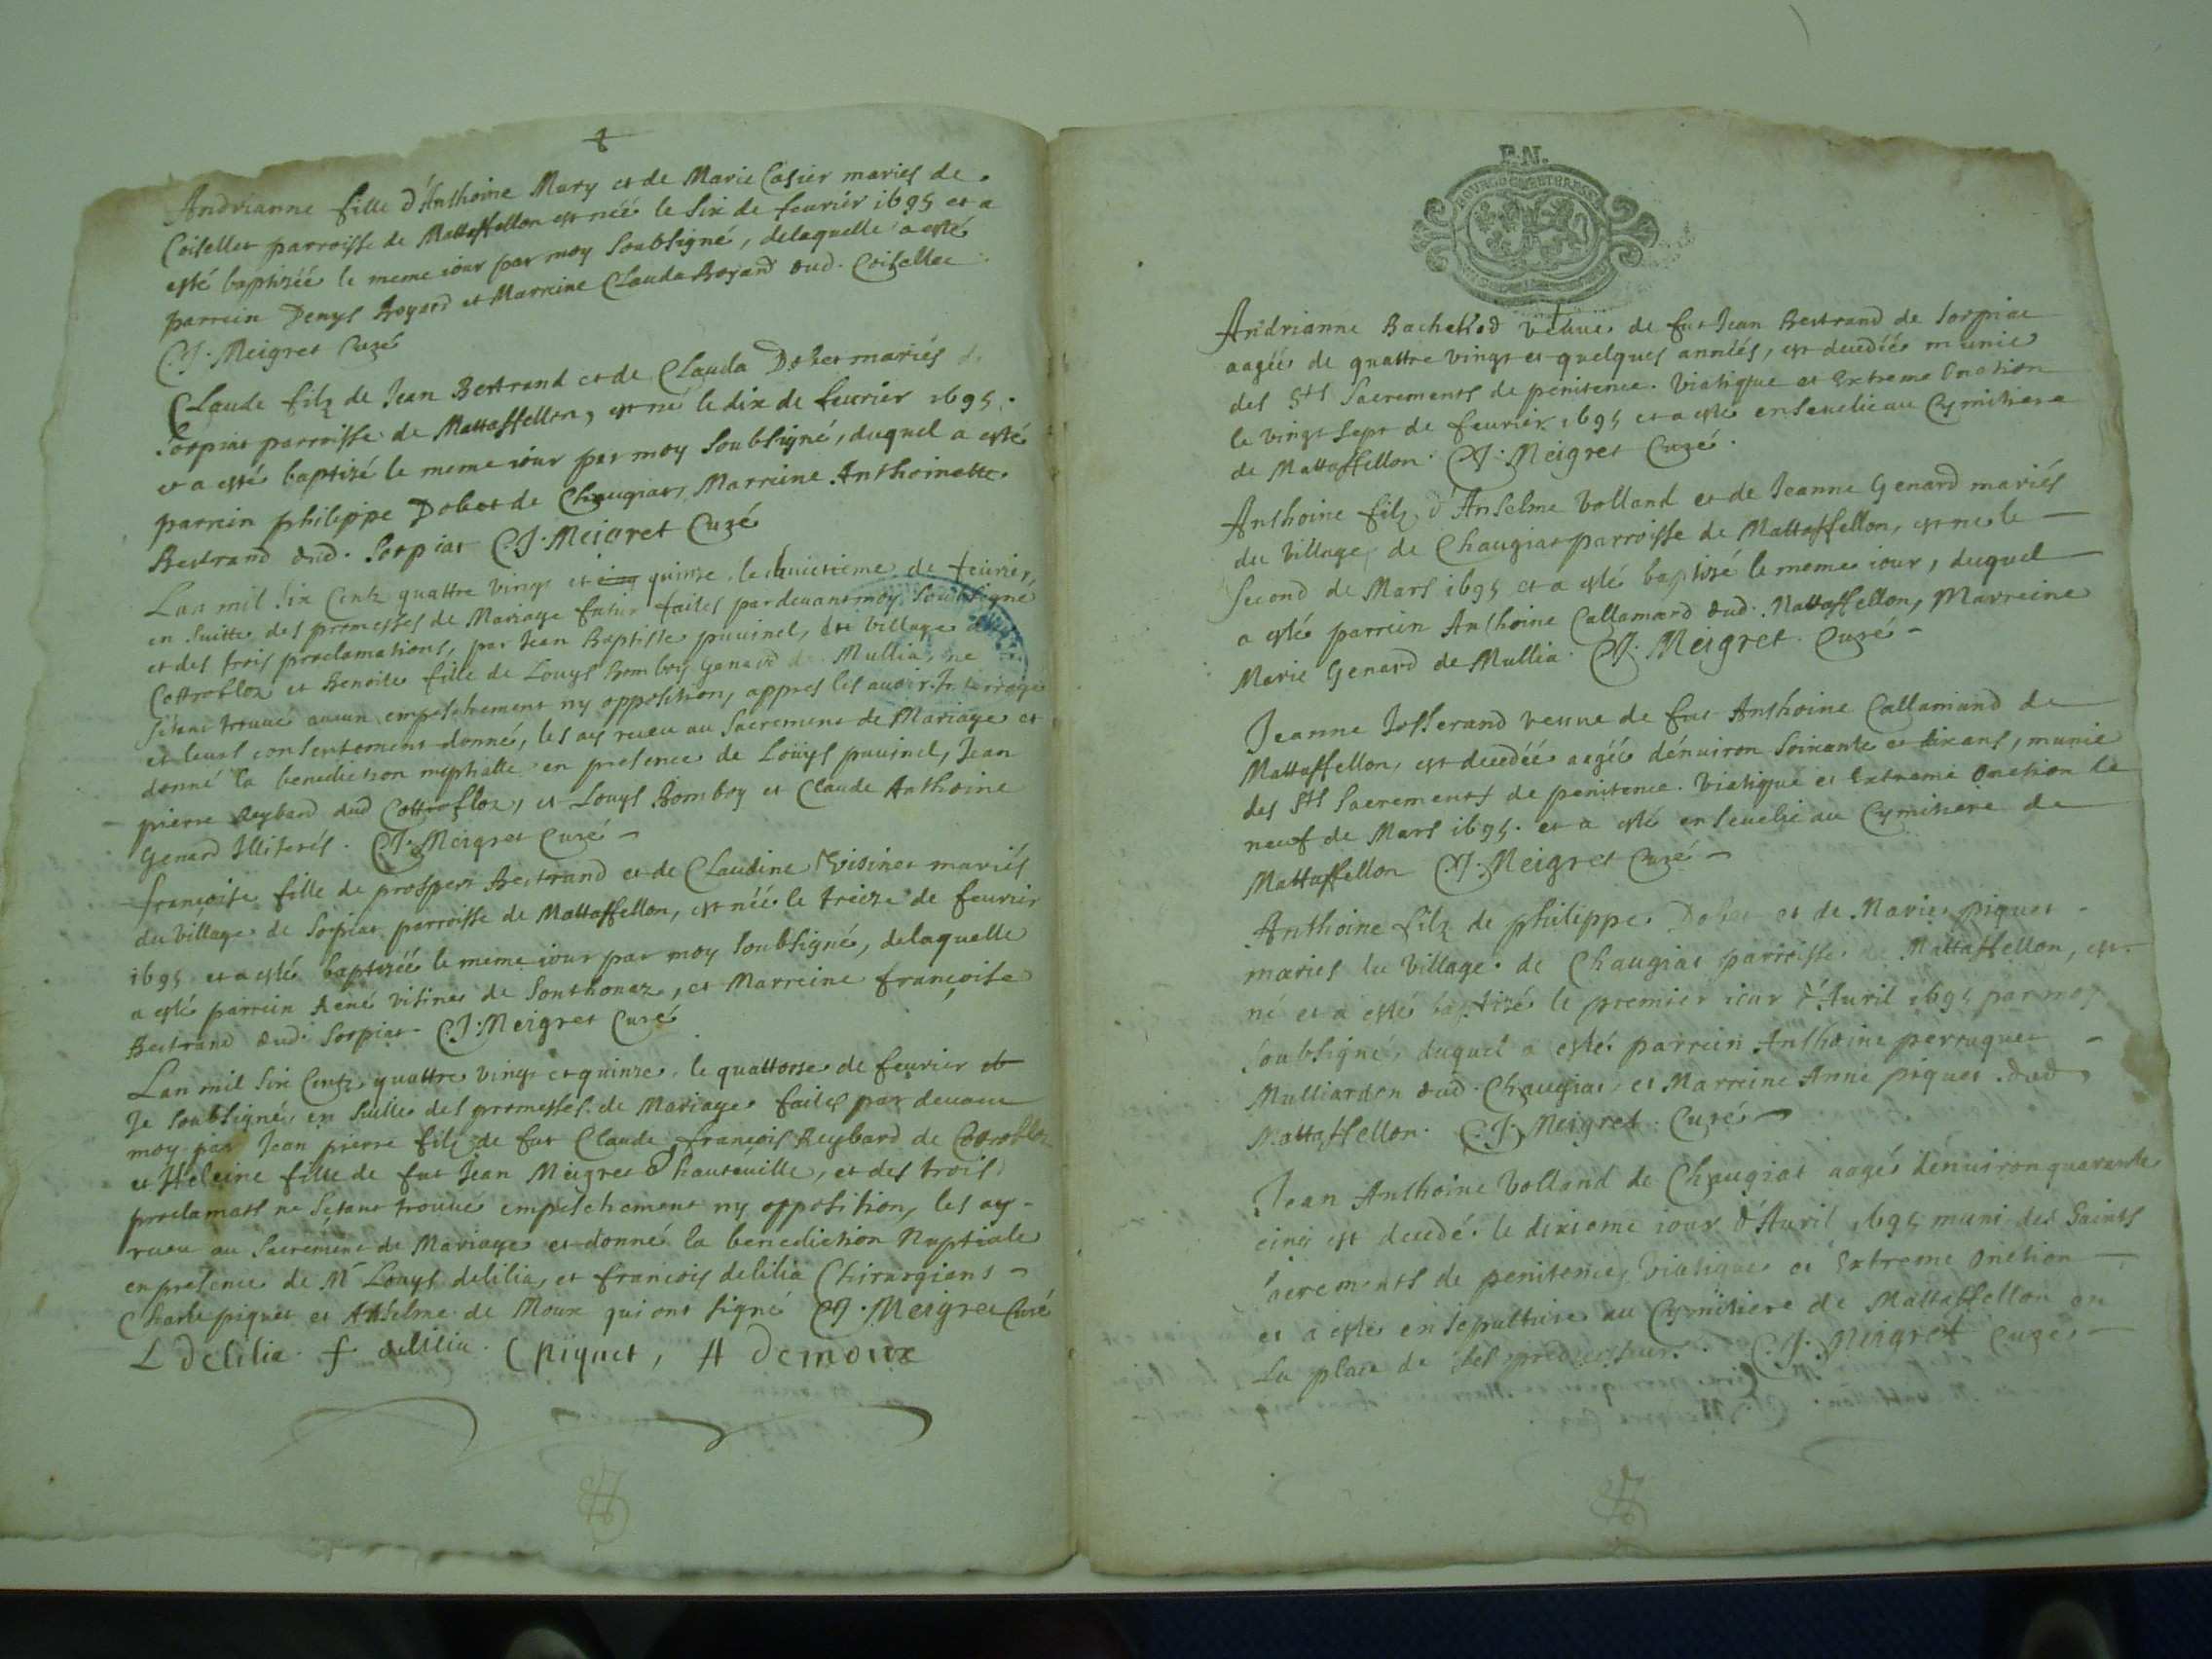 Andrianne fille d'Anthoine Mary et de Marie Casier mariés de
Coiselles parroisse de Mattaffellon est néé le six de feurier 1695 et a
esté baptizéé le meme iour par moy soubsigné, delaquelle a esté
parrein Denys Boyard et Marreine Clauda Boyard dud. Coisellec
C.J. Meigret Curé
Claude filz de Jean Bertrand et de Clauda Dohet mariés de
Sorpiat parroisse de Mattaffellon, est né le dix de feurier 1695.
et a esté baptizé le meme iour par moy soubsigné, duquel a esté
parrein philippe Dohet de Chaugiat, Marreine Anthoinette
Bertrand dud. Sorpiat C.J. Meigret Curé
Lan mil six Centz quattre vingt et cinq quinze le huictieme de feurier,
en suitte des promesses de Mariage futur faites pardeuant moy soubsigné
et des trois proclamations, par Jean Baptiste puuinel, du village de
Cottrofloz et Benoite fille de Louys Bomboy Genard de Mullia, ne
s'étant trouué aucun empeschement ny opposition, appres les auoir Interrogé
et leurs consentement donné, les ay receu au Sacrement de Mariage et
donné la benediction nuptialle en presence de Loüys puuinel, Jean
pierre Reybard dud Cottrofloz, et Louys Bomboy et Claude Anthoine
Genard Illiterés. C.J. Meigret Curé
françoise fille de prosper Bertrand et de Claudine Visinet mariés
du village de Sorpiat parroisse de Mattaffellon, est néé le treize de feurier
1695 et a esté baptizéé le meme iour par moy soubsigné, delaquelle
a esté parrein René Visinet de Sonthonaz, et Marreine françoise
Bertrand dud. Sorpiat. C.J. Meigret Curé
Lan mil six Centz quattre vingt et quinze le quattorse de feurier
Je soubsigné, en suitte des promesses de Mariage faites par deuant
moy par Jean pierre filz de fut Claude françois Reybard de Cotrofloz
et Heleine fille de fut Jean Meigret d'hauteuille, et des trois
proclamats ne s'étant trouué empeschement ny opposition, les ay
receu au Sacrement de Mariage et donné la benediction Nuptiale
en presence de Mr Louys delilia, et francois delilia Chirurgiens
Charle piquet et Anselme de Moux qui ont signé C.J. Meigret Curé
L Delilia. f delilia. C piquet, A Demoux
F.N.
BOURGOGNE ET BRESSE
Andrianne Bachellod veuue de fut Jean Bertrand de Sorpiat
aagéé de quattre vingt et quelques annéés, est decedéé munie
des Sts Sacrements de penitence. Viatique et Extreme Onction
le vingt sept de feurier 1695 et a esté enseuelie au Cymitiere
de Mattaffellon. C.J. Meigret Curé.
Anthoine filz d'Anselme Volland et de Jeanne Genard mariés
du village de Chaugiat parroisse de Mattaffellon, est né le
second de Mars 1695 et a esté baptizé le meme iour, duquel
a esté parrein Anthoine Callamard dud. Mattaffellon, Marreine
Marie Genard de Mullia. C.J. Meigret. Curé
Jeanne Josserand veuue de fut Anthoine Callamand de
Mattaffellon, est decedéé aagéé dénuiron soixante et dix ans, munie
des Sts Sacrements de penitence. Viatique et Extreme Onction le
neuf de Mars 1695. et a esté enseuelie au Cymitiere de
Mattaffellon C.J. Meigret Curé
Anthoine filz de philippe Dohet et de Marie piquet
mariés du Village de Chaugiat parroisse de Mattaffellon, est
né et a esté baptizé le premier iour d'Auril 1695 par moy
soubsigné, duquel a esté parrein Anthoine perruquet
Mulliardon dud. Chaugiat, et Marreine Anne piquet dud
Mattaffellon. C.J. Meigret Curé
Jean Anthoine Volland de Chaugiat aagé dénuiron quarante
cinq est decedé le dixieme iour d'Auril 1695 muni des Saints
Sacrements de penitence, Viatique et Extreme Onction
et a esté en sepulture au Cymitiere de Mattaffellon en
La place de ses predecesseurs. C.J. Meigret Curé